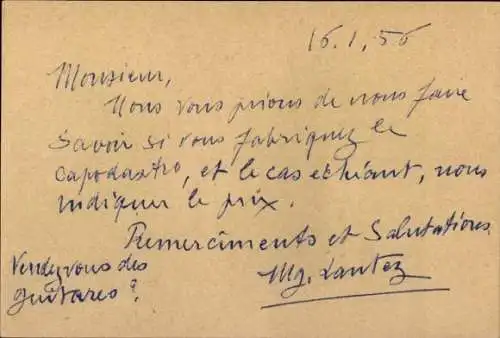 16.1.56
Monsieur,
Nous vous prions de nous faire
savoir si vous fabriquez le
capodastro, et le cas échéant, nous
indiquer le prix.
Remerciments et Salutations
Vendez vous des
guitares?
Mg.